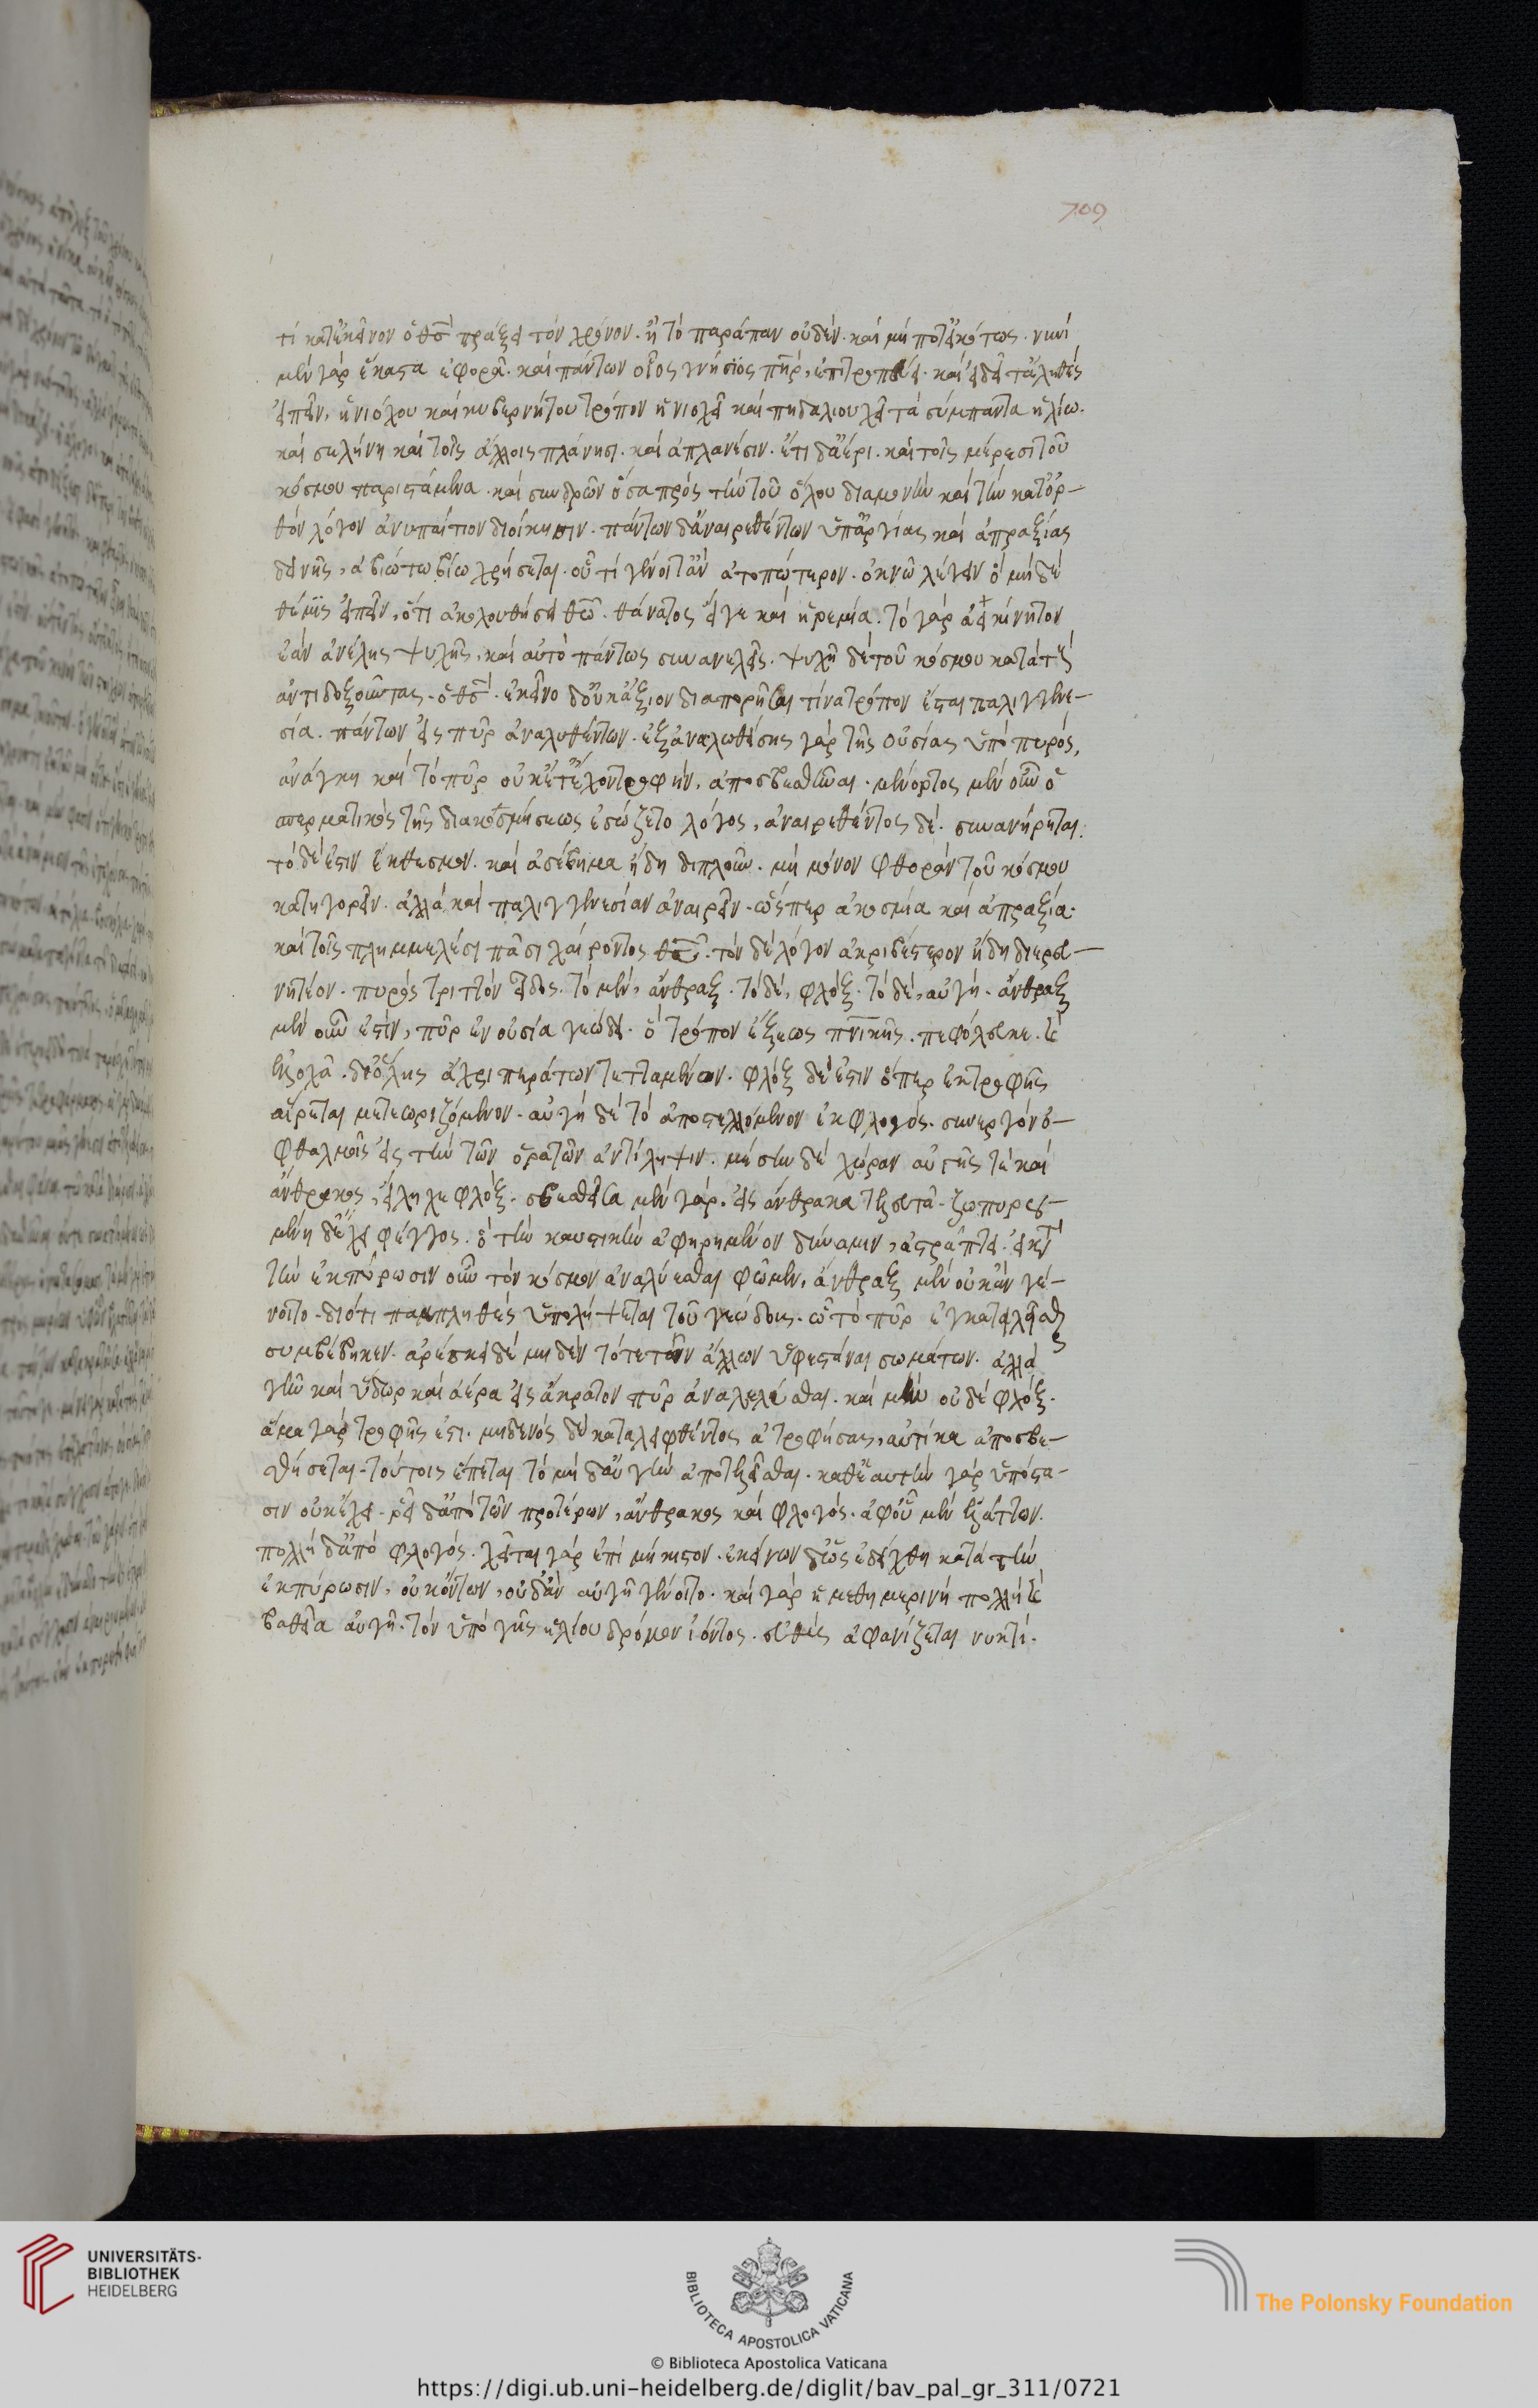 709
τί κατ' ἐκεῖνον ὁ θσ πράξει τὸν χρόνον. ἢ τὸ παράπαν οὐδέν. καὶ μή ποτ' εἰκότως. νυνὶ
μὲν γὰρ ἕκαστα ἐφορᾶ. καὶ πάντων οἷος γνήσιος πηρ, ἐπιτροπεύει. καὶ εἰ δεῖ τἀληθὲς
εἰπεῖν, ἡνιόχου καὶ κυβερνήτου τρόπον ἡνιοχεῖ καὶ πηδαλιουχεῖ τὰ σύμπαντα ἡλίω.
καὶ σελήνη καὶ τοῖς ἄλλοις πλάνησι. καὶ ἀπλανέσιν. ἔτι δ' ἀέρι. καὶ τοῖς μέρεσι τοῦ
κόσμου παριστάμενα. καὶ συνδρῶν ὅσα πρὸς τὴν τοῦ ὅλου διαμονὴν καὶ τὴν κατ' ὀρ-
θὸν λόγον ἀνυπαίτιον διοίκησιν. πάντων δ' ἀναιρεθέντων ὑπ' ἀργίας καὶ ἀπραξίας
δεινῆς, ἀβιώτω βίω χρήσεται. οὗ τί γένοιτ' ἂν ἀτοπώτερον. ὀκνῶ λέγειν ὃ μηδὲ
θέμις εἰπεῖν, ὅτι ἀκολουθήσει θεῶ. θάνατος εἴγε καὶ ἠρεμία. τὸ γὰρ ἀεικίνητον
ἐὰν ἀνέλης ψυχῆς, καὶ αὐτὸ πάντως συνανελεῖς. ψυχὴ δὲ τοῦ κόσμου κατὰ τοὺς
ἀντιδοξοῦντας. ὁ θσ. ἐκεῖνο δ' οὐκ ἄξιον διαπορῆσαι τίνα τρόπον ἔσται παλιγγενε-
σία. πάντων εἰς πῦρ ἀναλυθέντων. ἐξαναλωθείσης γὰρ τῆς οὐσίας ὑπὸ πυρός,
ἀνάγκη καὶ τὸ πῦρ οὐκέτ' ἔχον τροφὴν, ἀποσβεσθῆναι. μένοντος μὲν οὖν ὁ
σπερματικὸς τῆς διακοσμήσεως ἐσώζετο λόγος, ἀναιρεθέντος δὲ. συνανήρηται.
τὸ δέ ἐστιν ἔκθεσμον. καὶ ἀσέβημα ἤδη διπλοῦν. μὴ μόνον φθορὰν τοῦ κόσμου
κατηγορεῖν. ἀλλὰ καὶ παλιγγενεσίαν ἀναιρεῖν. ὥσπερ ἀκοσμία καὶ ἀπραξία.
καὶ τοῖς πλημμελέσι πᾶσι χαίροντος θυ. τὸν δὲ λόγον ἀκριβέστερον ἤδη διερευ-
νητέον. πυρὸς τριττὸν εἶδος. τὸ μὲν, ἄνθραξ. τὸ δὲ, φλόξ. τὸ δὲ, αὐγή. ἄνθραξ
μὲν οὖν ἐστιν, πῦρ ἐν οὐσία γεώδει. ὃ τρόπον ἕξεως πνικῆς. πεφόλευκε. καὶ
ἐλλοχᾶ. δι' ὅλης ἄχρι περάτων τεταμένων. φλὸξ δέ ἐστιν ὅπερ ἐκ τροφῆς
αἴρεται μετεωριζόμενον. αὐγὴ δὲ τὸ ἀποστελλόμενον ἐκ φλογός. συνεργὸν ὀ-
φθαλμοῖς εἰς τὴν τῶν ὁρατῶν ἀντίληψιν. μέσην δὲ χώραν αὐγῆς τὲ καὶ
ἄνθρακος, εἴληχε φλόξ. σβεσθεῖσα μὲν γὰρ. εἰς ἄνθρακα τελευτᾶ. ζωπυρου-
μένη δ' ἔχει φέγγος. ὃ τὴν καυστικὴν ἀφηρημένον δύναμιν, ἀστράπτει. εἰ κτ
τὴν ἐκπύρωσιν οὖν τὸν κόσμον ἀναλύεσθαι φῶμεν, ἄνθραξ μὲν οὐκ ἂν γέ-
νοιτο. διότι παμπληθὲς ὑπολήψεται τοῦ γεώδους. ὧ τὸ πῦρ ἐγκατειλεῖσθ
συμβέβηκεν. ἀρέσκει δὲ μηδὲν τότε τῶν ἄλλων ὑφεστάναι σωμάτων. ἀλλὰ
γῆν καὶ ὕδωρ καὶ ἀέρα εἰς ἄκρατον πῦρ ἀναλελύσθαι. καὶ μὴν οὐδὲ φλόξ.
ἅμα γὰρ τροφῆς ἐστι. μηδενὸς δὲ καταλειφθέντος ἀτροφήσας, αὐτίκα ἀποσβε-
σθήσεται. τούτοις ἕπεται τὸ μηδ' αὐγὴν ἀποτελεῖσθαι. καθ' ἑαυτὴν γὰρ ὑπόστα-
σιν οὐκ ἔχει. ῥεῖ δ' ἀπὸ τῶν προτέρων, ἄνθρακος καὶ φλογός. ἀφ' οὗ μὲν ἐλάττων.
πολλὴ δ' ἀπὸ φλογός. χεῖται γὰρ ἐπὶ μήκιστον. ἐκείνων δ' ὡς ἐδείχθη κατὰ τὴν
ἐκπύρωσιν, οὐκ ὄντων, οὐδ' ἂν αὐγὴ γένοιτο. καὶ γὰρ ἡ μεθημερινὴ πολλὴ καὶ
βαθεῖα αὐγὴ. τὸν ὑπὸ γῆς ἡλίου δρόμον ἰόντος. εὐθὺς ἀφανίζεται νυκτί.
UNIVERSITÄTS-
BIBLIOTHEK
HEIDELBERG
BIBLIOTECA APOSTOLICA VATICANA
The Polonsky Foundation
© Biblioteca Apostolica Vaticana
https://digi.ub.uni-heidelberg.de/diglit/bav_pal_gr_311/0721